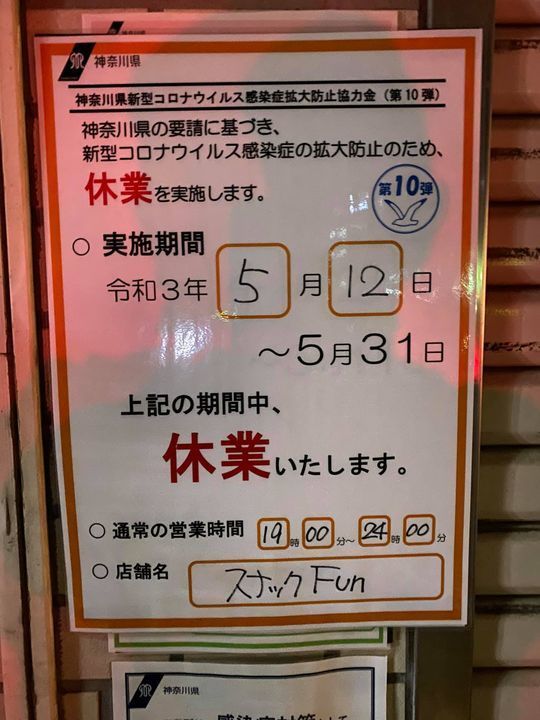 神奈川県
神奈川県新型コロナウイルス感染症拡大防止協力金（第10弾）
神奈川県の要請に基づき、
新型コロナウイルス感染症の拡大防止のため、
休業を実施します。
第10弾
○ 実施期間
令和3年 5月12日
～5月31日
上記の期間中、
休業いたします。
○ 通常の営業時間 19時00分～24時00分
○ 店舗名 スナックFun
神奈川県